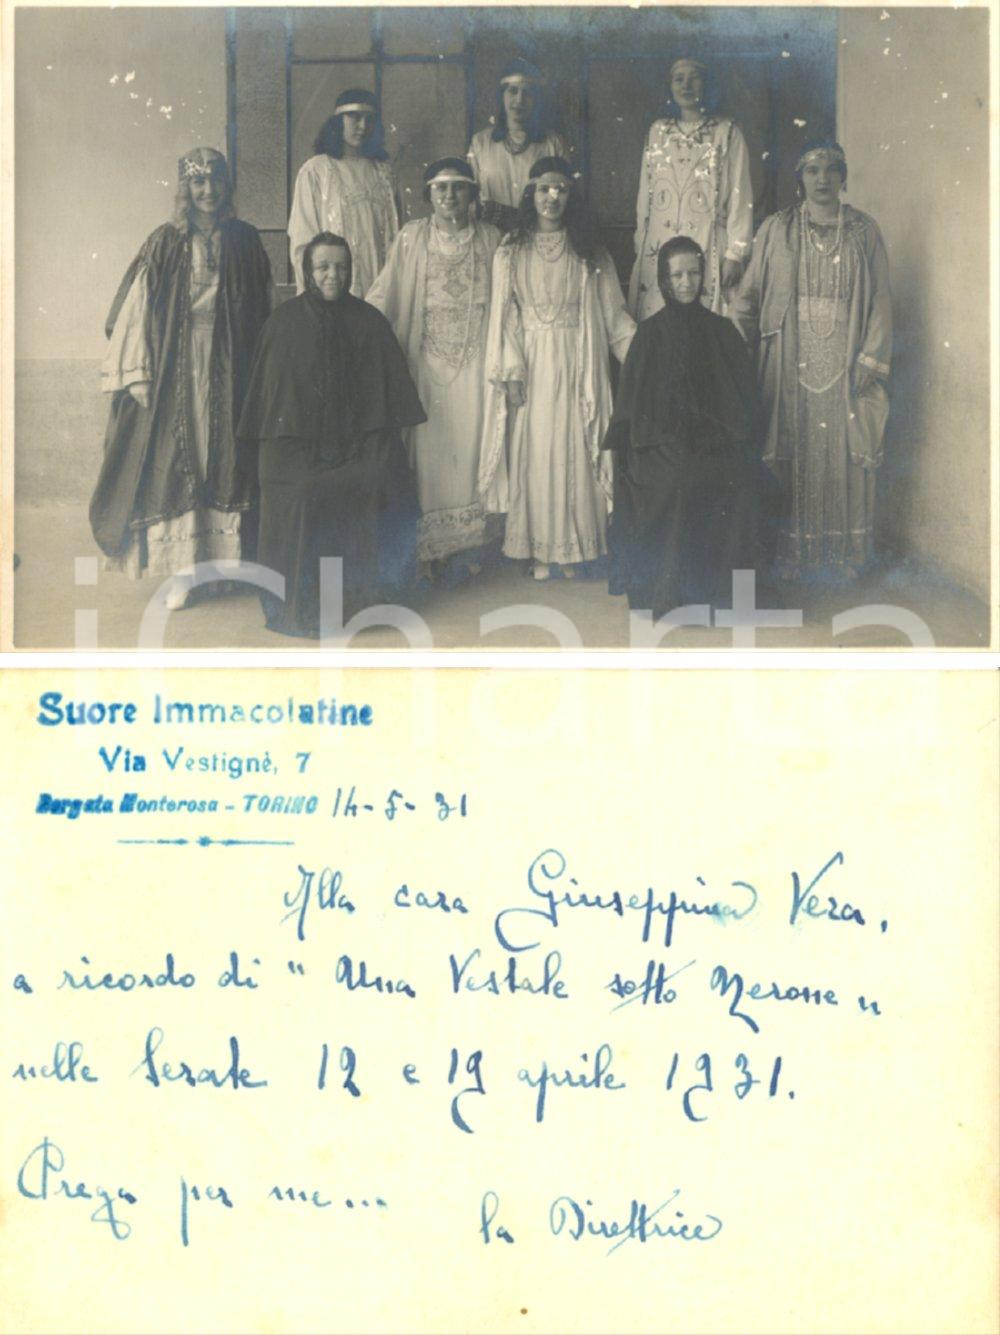 iCharta
Suore Immacolatine
Via Vestignè, 7
Borgata Monterosa - TORINO 14-5-31
Alla cara Giuseppina Vera,
a ricordo di "Una Vestale sotto Nerone"
nelle serate 12 e 19 aprile 1931.
Prega per me...
la Direttrice